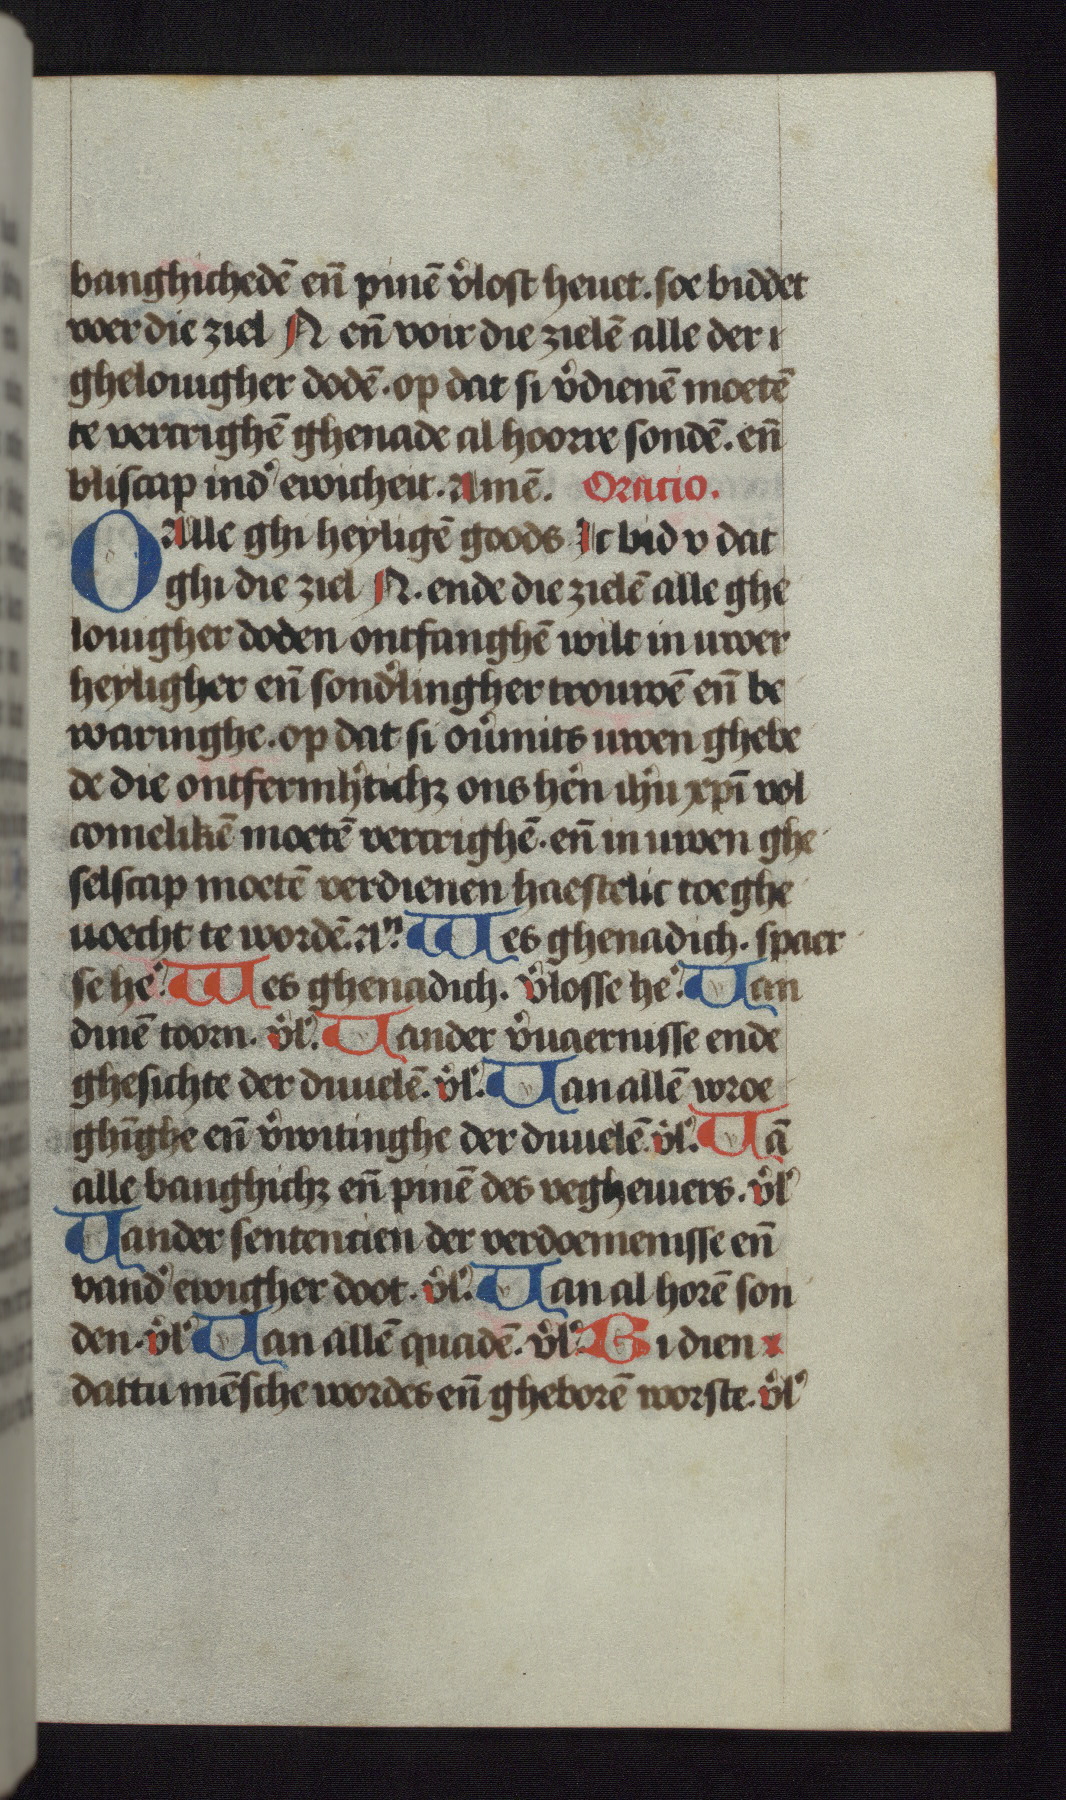 banghichedē en̄ pinē v̓lost heuet. soe biddet
voer die ziel N en̄ voir die zielē alle der i
ghelouigher dodē. op dat si v̓dienē moetē
te vercrighē ghenade al hoorre sondē. en̄
bliscap ind̓ ewicheit. Amē. Oracio.
O Alle ghi heyligē goods Ic bid v dat
ghi die ziel N. ende die zielē alle ghe
louigher doden ontfanghē wilt in uwer
heyligher en̄ sond̓lingher trouwē en̄ be
waringhe. op dat si ou̓mits uwen ghebe
de die ontfermh̓tichꝫ ons he̓n ihū xp̄i vol
comelikē moetē vercrighē. en̄ in uwen ghe
selscap moetē verdienen haestelic toeghe
uoecht te wordē. Aⁿ. Wes ghenadich. spaer
se he̓. Wes ghenadich. v̓losse he̓. Van
dinē toorn. v̓l̓. Vander v̓uaernisse ende
ghesichte der duuelē. v̓l̓. Van allē wroe
ghīghe en̄ v̓witinghe der duuelē. v̓l̓. Vā
alle banghichꝫ en̄ pinē des veghewers. v̓l̓
Vander sentencien der verdoemenisse en̄
vand̓ ewigher doot. v̓l̓. Van al horē son
den. v̓l̓ Van allē quadē. v̓l̓. Bi dien
dattu mēsche wordes en̄ gheborē worste. v̓l̓